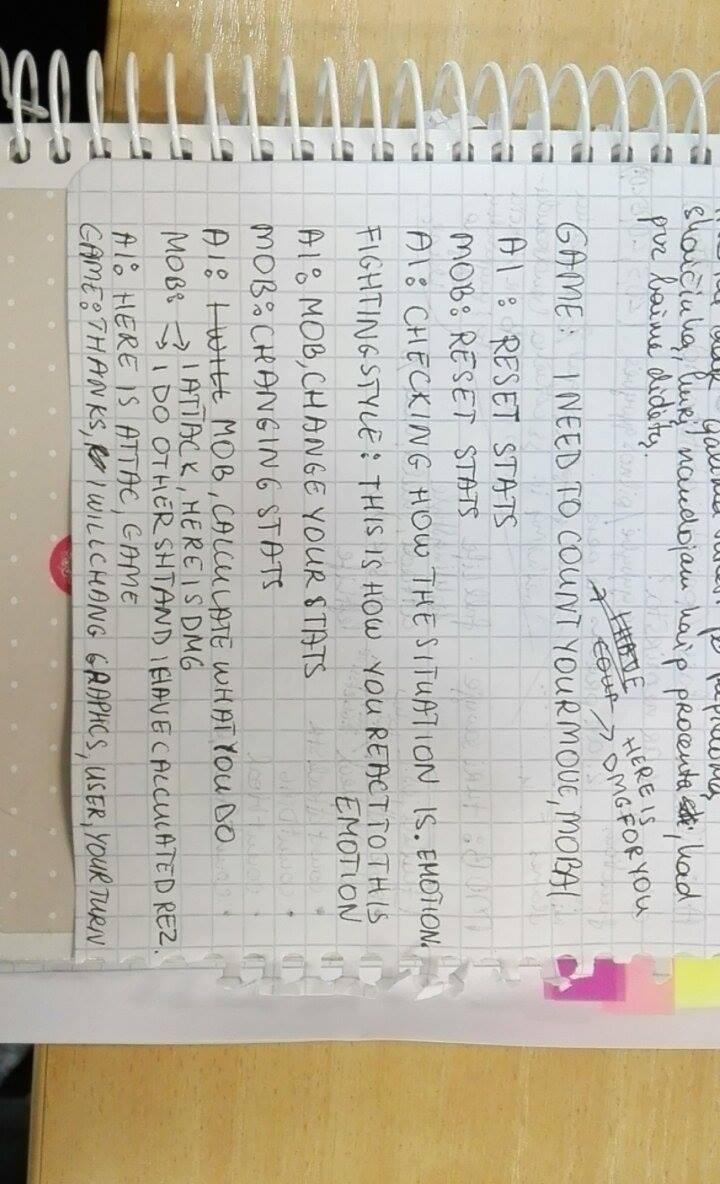 skaičiuką, kurį naudojam kaip procenta, kad
pvz baimė didėtų.
I HAVE
COUP
HERE IS
DMG FOR YOU
GAME: I NEED TO COUNT YOUR MOVE, MOBAI.
AI: RESET STATS
MOB: RESET STATS
AI: CHECKING HOW THE SITUATION IS. EMOTION.
FIGHTINGSTYLE: THIS IS HOW YOU REACT TO THIS
EMOTION
AI: MOB, CHANGE YOUR STATS
MOB: CHANGING STATS
AI: I WILL MOB, CALCULATE WHAT YOU DO
MOB: → I ATTACK, HERE IS DMG
→ I DO OTHER SHT AND I HAVE CALCULATED REZ.
AI: HERE IS ATTAC, GAME
GAME: THANKS, I WILL CHANG GRAPHCS, USER, YOUR TURN